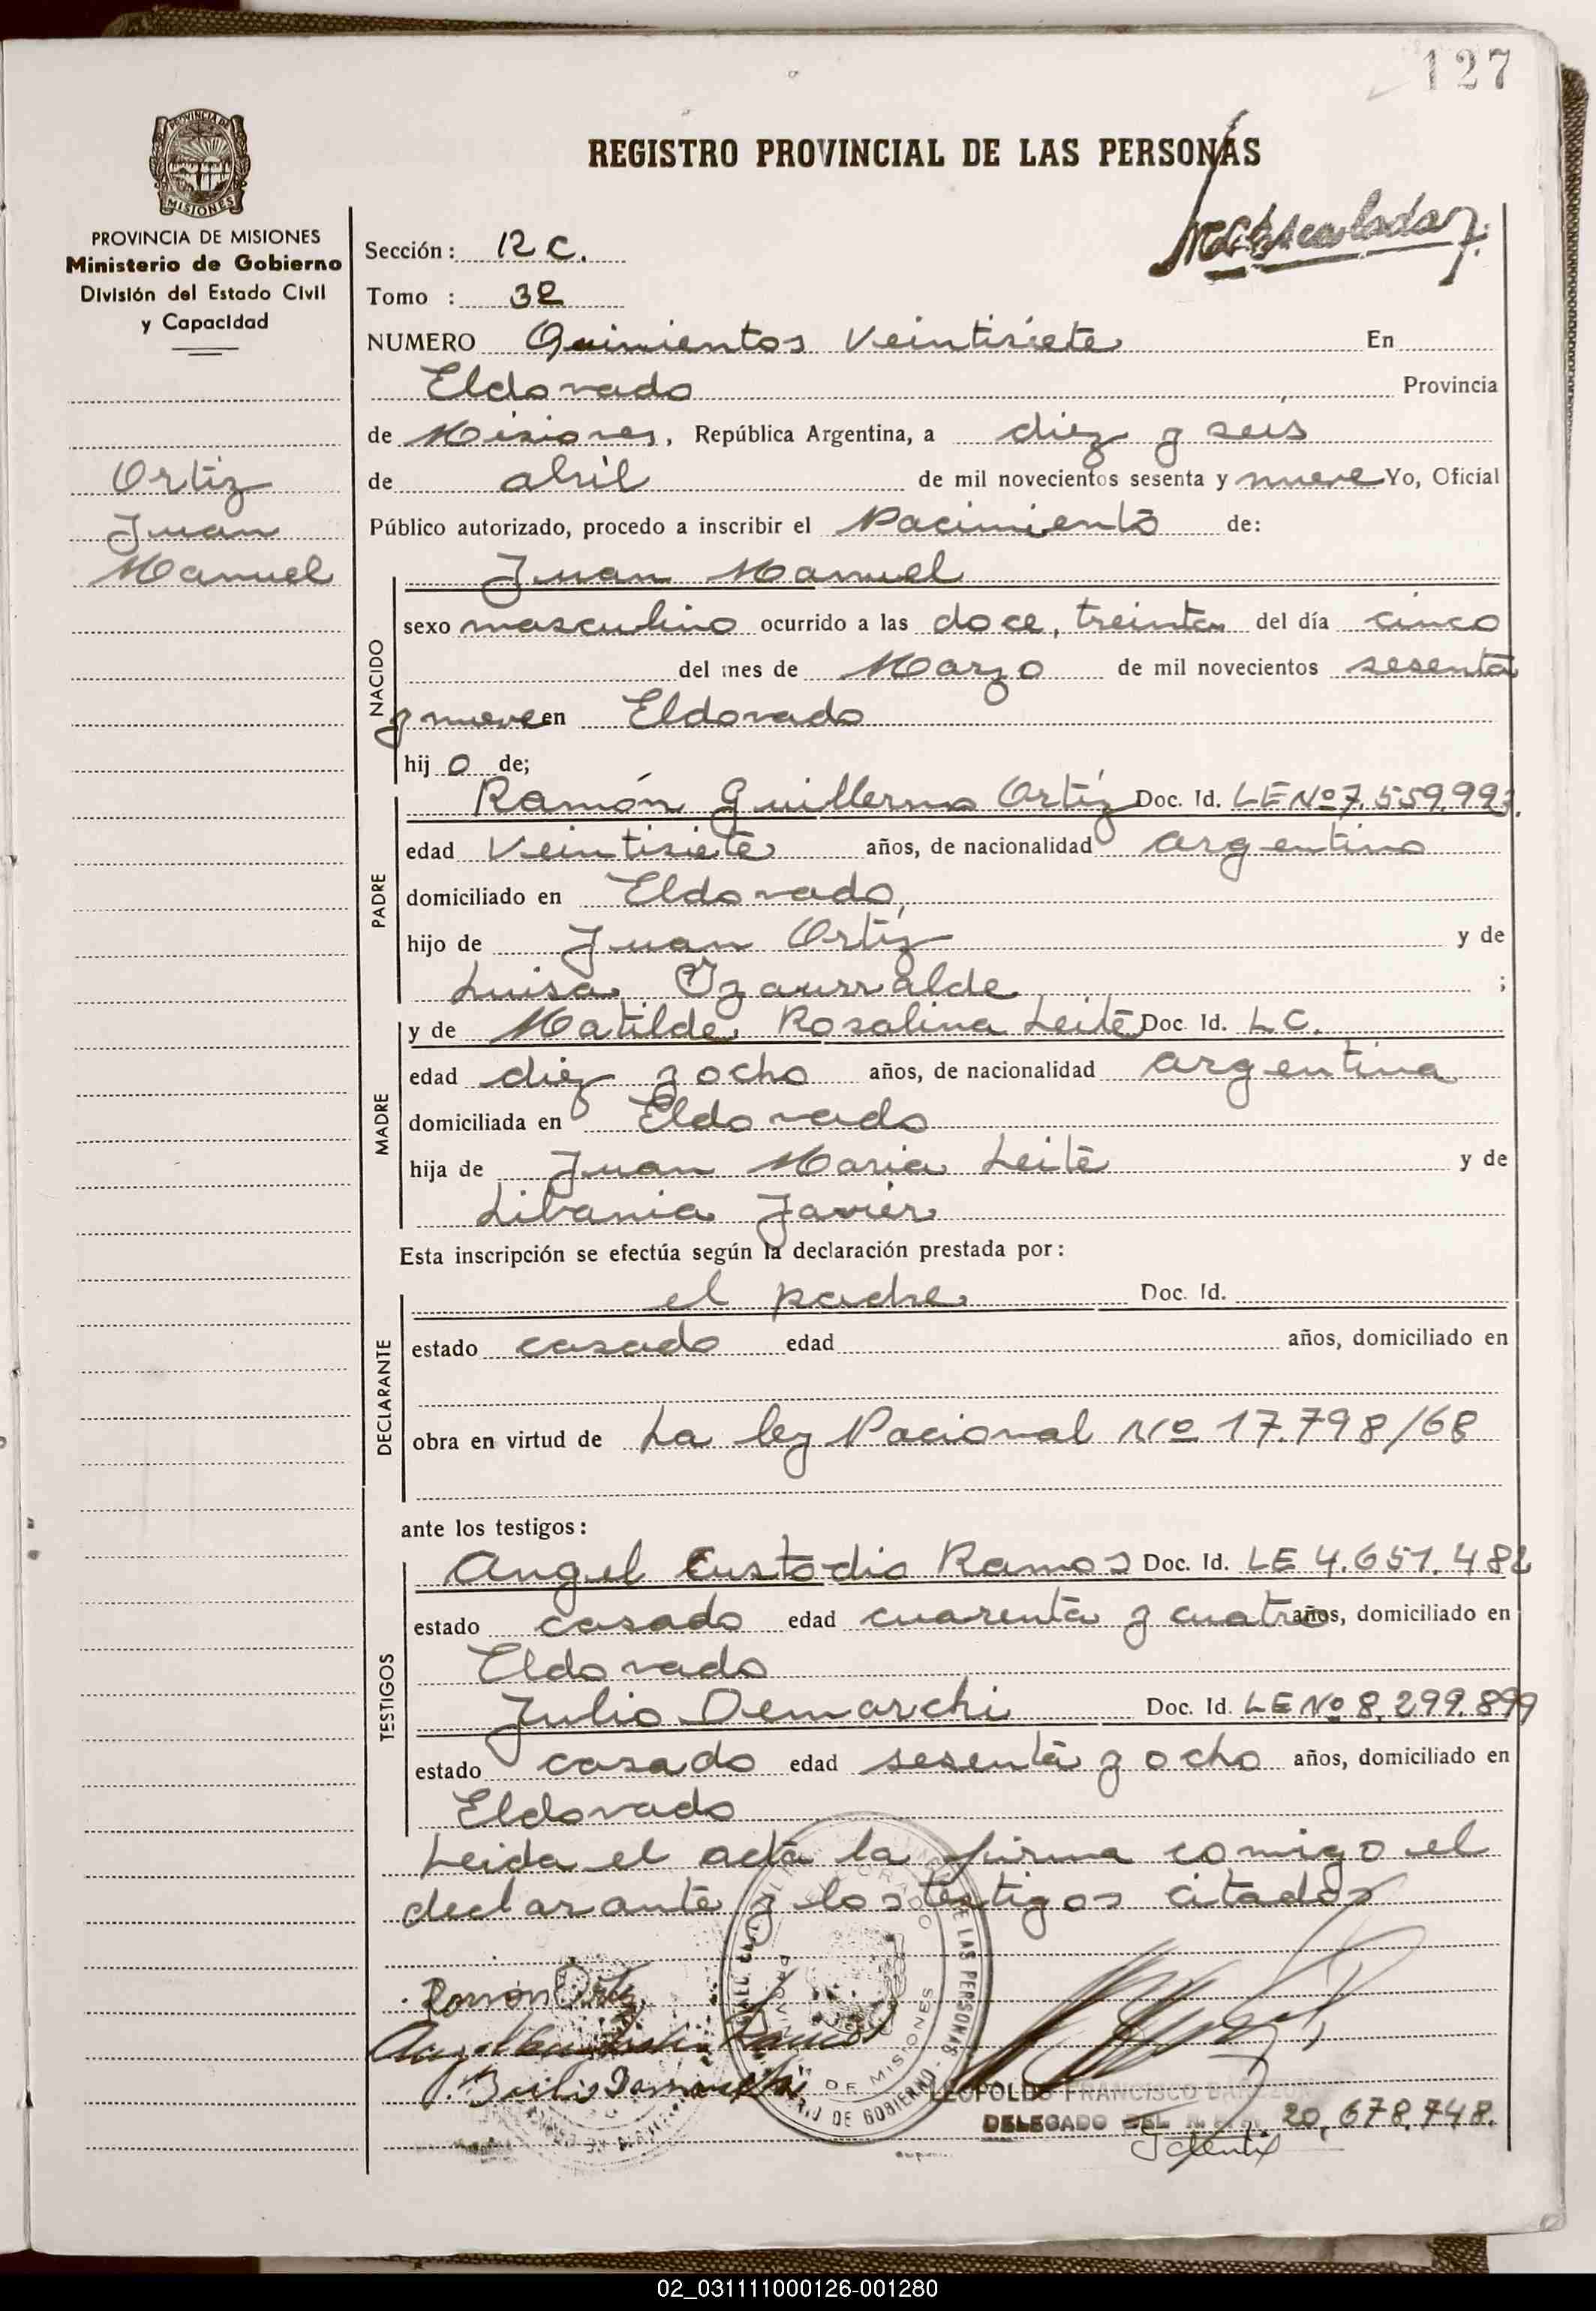 127
REGISTRO PROVINCIAL DE LAS PERSONAS
PROVINCIA DE MISIONES
Ministerio de Gobierno
División del Estado Civil
y Capacidad
Ortiz
Juan
Manuel
Sección: 1ª C.
Tomo : 3º
NUMERO Quinientos Veintisiete En
Eldorado Provincia
de Misiones, República Argentina, a diez y seis
de abril de mil novecientos sesenta y nueve Yo, Oficial
Público autorizado, procedo a inscribir el Nacimiento de:
Juan Manuel
NACIDO
sexo masculino ocurrido a las doce, treinta del día cinco
del mes de Marzo de mil novecientos sesenta
y nueve en Eldorado
hij o de;
PADRE
Ramón Guillermo Ortíz Doc. Id. LE Nº 7.559.993.
edad Veintisiete años, de nacionalidad argentino
domiciliado en Eldorado,
hijo de Juan Ortíz y de
Luisa Ozaurralde ;
MADRE
y de Matilde Rosalina Leite Doc. Id. L.C.
edad diez y ocho años, de nacionalidad argentina
domiciliada en Eldorado
hija de Juan Maria Leite y de
Libania Javier
Esta inscripción se efectúa según la declaración prestada por:
DECLARANTE
el padre Doc. Id.
estado casado edad años, domiciliado en
obra en virtud de La ley Nacional Nº 17.798/68
ante los testigos:
TESTIGOS
Angel Custodio Ramos Doc. Id. LE 4.651.482
estado casado edad cuarenta y cuatro años, domiciliado en
Eldorado
Julio Demarchi Doc. Id. LE Nº 8.299.899
estado casado edad sesenta y ocho años, domiciliado en
Eldorado
Leida el acta la firma comigo el
declarante y los testigos citados
Ramón Ortiz
Angel Custodio Ramos
Julio Demarchi
LEOPOLDO FRANCISCO
DELEGADO 20,678,748.
02_031111000126-001280